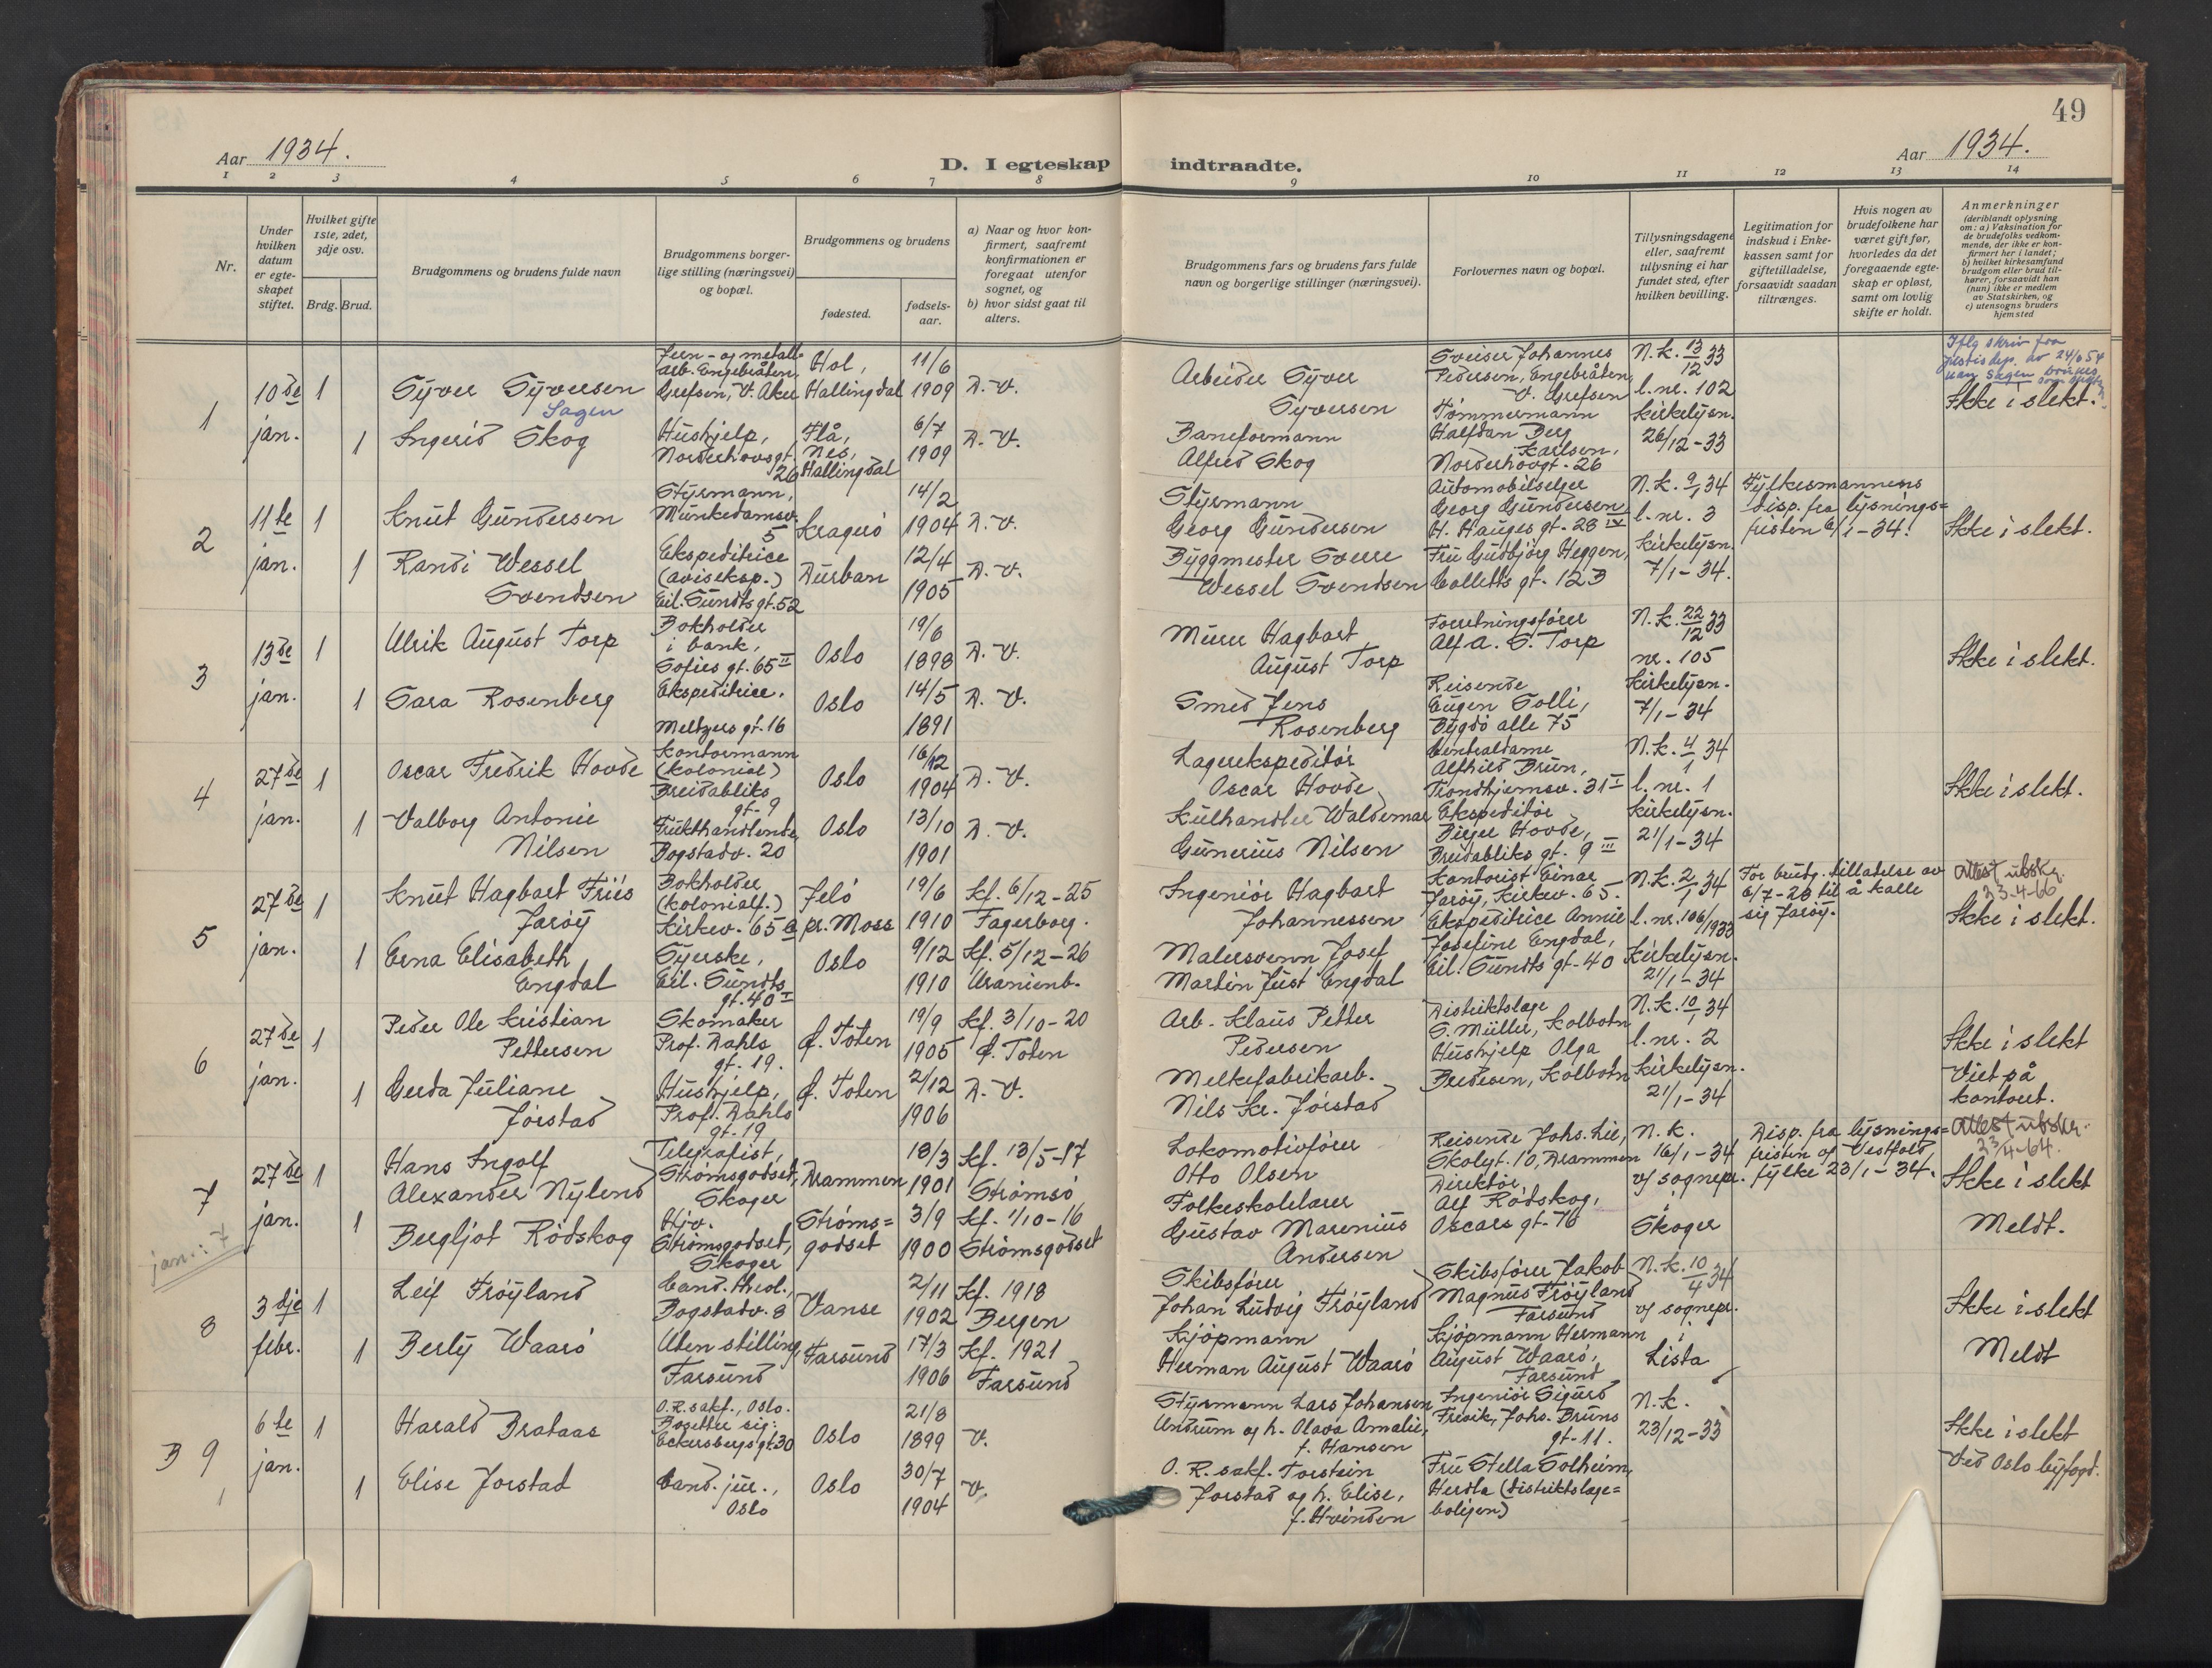 49
Aar 1934.
D. I egteskap indtraadte.
Aar 1934.
1 2 3 4 5 6 7 8 9 10 11 12 13 14
Nr.
Under hvilken datum er egteskapet stiftet.
Hvilket gifte 1ste, 2det, 3dje osv.
Brdg. Brud.
Brudgommens og brudens fulde navn
Brudgommens borgerlige stilling (næringsvei) og bopæl.
Brudgommens og brudens
fødested.
fødsels-aar.
a) Naar og hvor konfirmert, saafremt konfirmationen er foregaat utenfor sognet, og
b) hvor sidst gaat til alters.
Brudgommens fars og brudens fars fulde navn og borgerlige stillinger (næringsvei).
Forlovernes navn og bopæl.
Tillysningsdagene eller, saafremt tillysning ei har fundet sted, efter hvilken bevilling.
Legitimation for indskud i Enkekassen samt for giftetilladelse, forsaavidt saadan tiltrænges.
Hvis nogen av brudefolkene har været gift før, hvorledes da det foregaaende egteskap er opløst, samt om lovlig skifte er holdt.
Anmerkninger
(deriblandt oplysning om: a) Vaksination for de brudefolks vedkommende, der ikke er konfirmert her i landet; b) hvilket kirkesamfund brudgom eller brud tilhører, forsaavidt han (hun) ikke er medlem av Statskirken, og c) utensogns bruders hjemsted
1
10de jan.
1
Syver Syversen
Sagen
Jern- og metallarb. Engebråten, Grefsen, V. Aker
Hol, Hallingdal
11/6 1909
D. V.
Arbeider Syver Syversen
Sveiser Johannes Pedersen, Engebråten, V. Grefsen
N.k. 13/12 33
l. nr. 102
Ikke i slekt.
1
Ingerid Skog
Hushjelp, Norderhovsgt. 26
Flå, Nes, Hallingdal
6/7 1909
D. V.
Baneformann Alfred Skog
Tømmermann Halfdan Berg Karlsen, Norderhovgt. 26
Kirkelysn. 26/12-33
Iflg skriv fra
justisdep. av 24/6 54
kan Sagen brukes
2
11te jan.
1
Knut Gundersen
Styrmann, Munkedamsv. 5
Kragerö
14/2 1904
D. V.
Styrmann Georg Gundersen
Automobilselger Georg Gundersen H. Hauges gt. 28 IV
N.k. 9/1 34
l. nr. 3
Fylkesmannens disp. fra lysnings=fristen 6/1-34.
Ikke i slekt.
1
Randi Wessel Svendsen
Ekspeditrice (aviseksp.) Eil. Sundts gt. 52
Durban
12/4 1905
D. V.
Byggmester Sverre Wessel Svendsen
Fru Gudbjörg Heggen, Colletts gt. 12 B
Kirkelysn. 7/1-34.
3
13de jan.
1
Ulrik August Torp
Bokholder i bank, Sofies gt. 65 II
Oslo
19/6 1898
D. V.
Murer Hagbart August Torp
Forretningsförer Alf A. S. Torp
N.k. 22/12 33
nr. 105
Ikke i slekt.
1
Sara Rosenberg
Ekspeditrice, Meltzers gt. 16
Oslo
14/5 1891
D. V.
Smed Jens Rosenberg
Reisende Eugen Solli, Bygdö alle 75
Kirkelysn. 7/1-34
4
27de jan.
1
Oscar Fredrik Hovde
Kontormann (kolonial) Breidabliks gt. 9
Oslo
16/12 1904
D. V.
Lagerekspeditör Oscar Hovde
Centraldame Alfhild Brun, Trondhjemsv. 31 I
N.k. 4/1 34
l. nr. 1
Ikke i slekt.
1
Valborg Antonie Nilsen
Frukthandlende, Bogstadv. 20
Oslo
13/10 1901
D. V.
Kulhandler Waldemar Gunerius Nilsen
Ekspeditör Birger Hovde, Breidabliks gt. 9 III
Kirkelysn. 21/1-34
5
27de jan.
1
Knut Hagbart Friis Jaröy
Bokholder (kolonialf.) Kirkev. 65 B
Jelö pr. Moss
19/6 1910
Kf. 6/12-25 Fagerborg.
Ingeniör Hagbart Johannessen
Kontorist Einar Jaröy, Kirkev. 65.
N.k. 2/1 34
l. nr. 106/1933
For brudg. tillatelse av 6/7-28 til å kalle sig Jaröy.
Attest utskr. 23-4-66
Ikke i slekt.
1
Erna Elisabeth Engdal
Syerske, Eil. Sundts gt. 40 I
Oslo
9/12 1910
Kf. 5/12-26 Uranienb.
Malersvenn Josef Martin Just Engdal
Ekspeditrice Annie Josefine Engdal, Eil. Sundts gt. 40
Kirkelysn. 21/1-34
6
27de jan.
1
Peder Ole Kristian Pettersen
Skomaker Prof. Dahls gt. 19.
Ø. Toten
19/9 1905
Kf. 3/10-20 Ø. Toten
Arb. Klaus Petter Pedersen
Distriktslæge S. Müller, Kolbotn
N.k. 10/1 34
l. nr. 2
Ikke i slekt
Viet på kontoret.
1
Gerda Juliane Jörstad
Hushjelp, Prof. Dahls gt. 19
Ø. Toten
2/12 1906
D. V.
Melkefabrikarb. Nils Kr. Jörstad
Hushjelp Olga Bredesen, Kolbotn
Kirkelysn. 21/1-34
7
27de jan.
1
Hans Ingolf Alexander Nylend
Telegrafist, Strömsgodset, Skoger
Drammen
18/3 1901
Kf. 13/5-17 Strömsö
Lokomotivförer Otto Olsen
Reisende Johs. Lie, Skolgt. 10, Drammen
N.k. 16/1-34
v/ sognepr. i Skoger
Disp. fra lysnings=fristen af Vestfold fylke 23/1-34.
Attest utskr. 23/4-64.
Ikke i slekt
Meldt.
1
Bergljot Rödskog
Hjv. Strömsgodset, Skoger
Ströms=godset
3/9 1900
Kf. 1/10-16 Strömsgodset
Folkeskolelærer Gustav Marenius Andersen
Direktör Alf Rödskog, Oscars gt. 76
jan.: 7
8
3dje febr.
1
Leif Fröyland
Cand. theol., Bogstadv. 8
Vanse
2/11 1902
Kf. 1918 Bergen
Skibsförer Johan Ludvig Fröyland
Skibsförer Jakob Magnus Fröyland Farsund
N.k. 10/4 34
v/ sognepr. i Lista
Ikke i slekt
Meldt
1
Berly Waarö
Uten stilling, Farsund
Farsund
17/3 1906
Kf. 1921 Farsund
Kjöpmann Herman August Waarö
Kjöpmann Hermann August Waarö, Farsund
B 9
6te jan.
1
Harald Brataas
O.R.sakf., Oslo. Bosetter sig: Eckersbergs gt. 30
Oslo
21/8 1899
V.
Styrmann Lars Johansen Undrum og h. Olava Amalie, f. Hansen
Ingeniör Sigurd Frivik, Johs. Bruns gt. 11.
N.k. 23/12-33
Ikke i slekt
Ved Oslo byfogd.
1
Elise Jorstad
Cand. jur., Oslo
Oslo
30/7 1904
V.
O.R.sakf. Torstein Jorstad og h. Elise, f. Hvinden
Fru Stella Solheim, Herdla (distriktslæge=boligen)